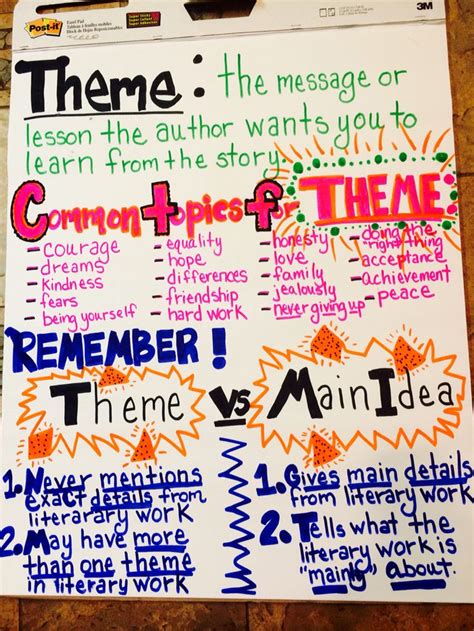 Post-it
Super Sticky
3M
Theme: the message or
lesson the author wants you to
learn from the story.
Common Topics for THEME:
- courage
- dreams
- Kindness
- fears
- being yourself
- equality
- hope
- differences
- friendship
- hard work
- honesty
- love
- family
- jealously
- never giving up
- doing the
"right" thing
- acceptance
- Achievement
- peace
REMEMBER!
Theme vs Main Idea
1. Never mentions
exact details from
literarary work
2. May have more
than one theme
in literary work
1. Gives main details
from literary work
2. Tells what the
literary work is
"mainly" about.